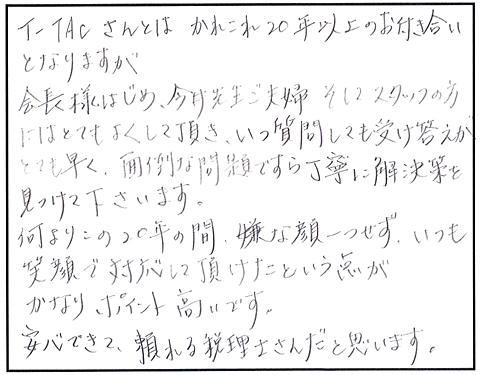 T-TACさんとは かれこれ20年以上のお付き合い
となりますが
会長様はじめ、今井先生ご夫婦 そしてスタッフの方
にはとてもよくして頂き、いつ質問しても受け答えが
とても早く、面倒な問題ですら丁寧に解決策を
見つけて下さいます。
何よりこの20年の間、嫌な顔一つせず、いつも
笑顔で対応して頂けたという点が
かなりポイント高いです。
安心できて、頼れる税理士さんだと思います。